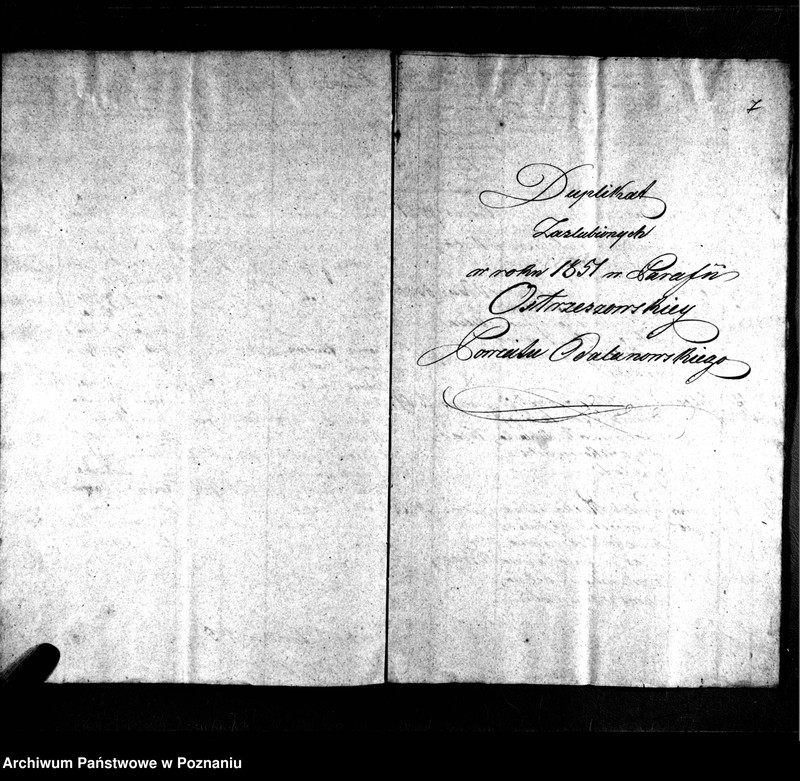 7
Duplikat
Zaslubionych
w roku 1851 w Parafii
Ostrzeszowskiey
Powiatu Odalanowskiego
Archiwum Państwowe w Poznaniu